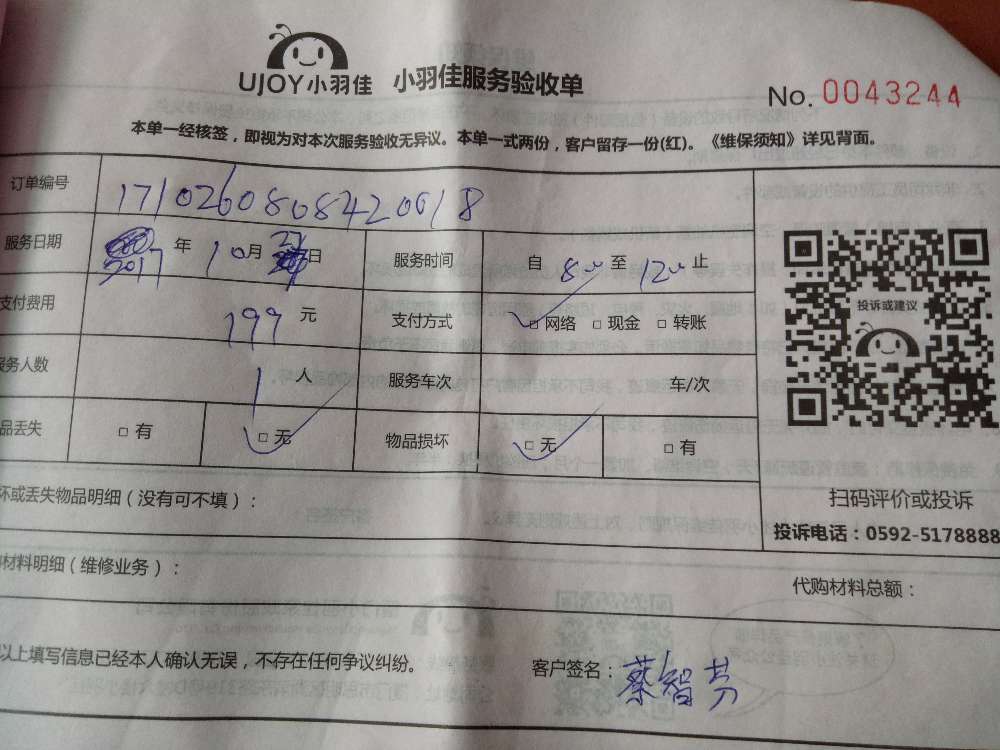 UJOY小羽佳 小羽佳服务验收单 No. 0043244
本单一经核签，即视为对本次服务验收无异议。本单一式两份，客户留存一份(红)。《维保须知》详见背面。
订单编号 1710260808420018
服务日期 2017 年 10 月 27 日 服务时间 自 8:00 至 12:00 止
支付费用 199 元 支付方式 ☑ 网络 □ 现金 □ 转账
投诉或建议
服务人数 1 人 服务车次 车/次
品丢失 □ 有 ☑ 无 物品损坏 ☑ 无 □ 有
坏或丢失物品明细（没有可不填）：
扫码评价或投诉
投诉电话：0592-5178888
材料明细（维修业务）：
代购材料总额：
以上填写信息已经本人确认无误，不存在任何争议纠纷。 客户签名：蔡智芬